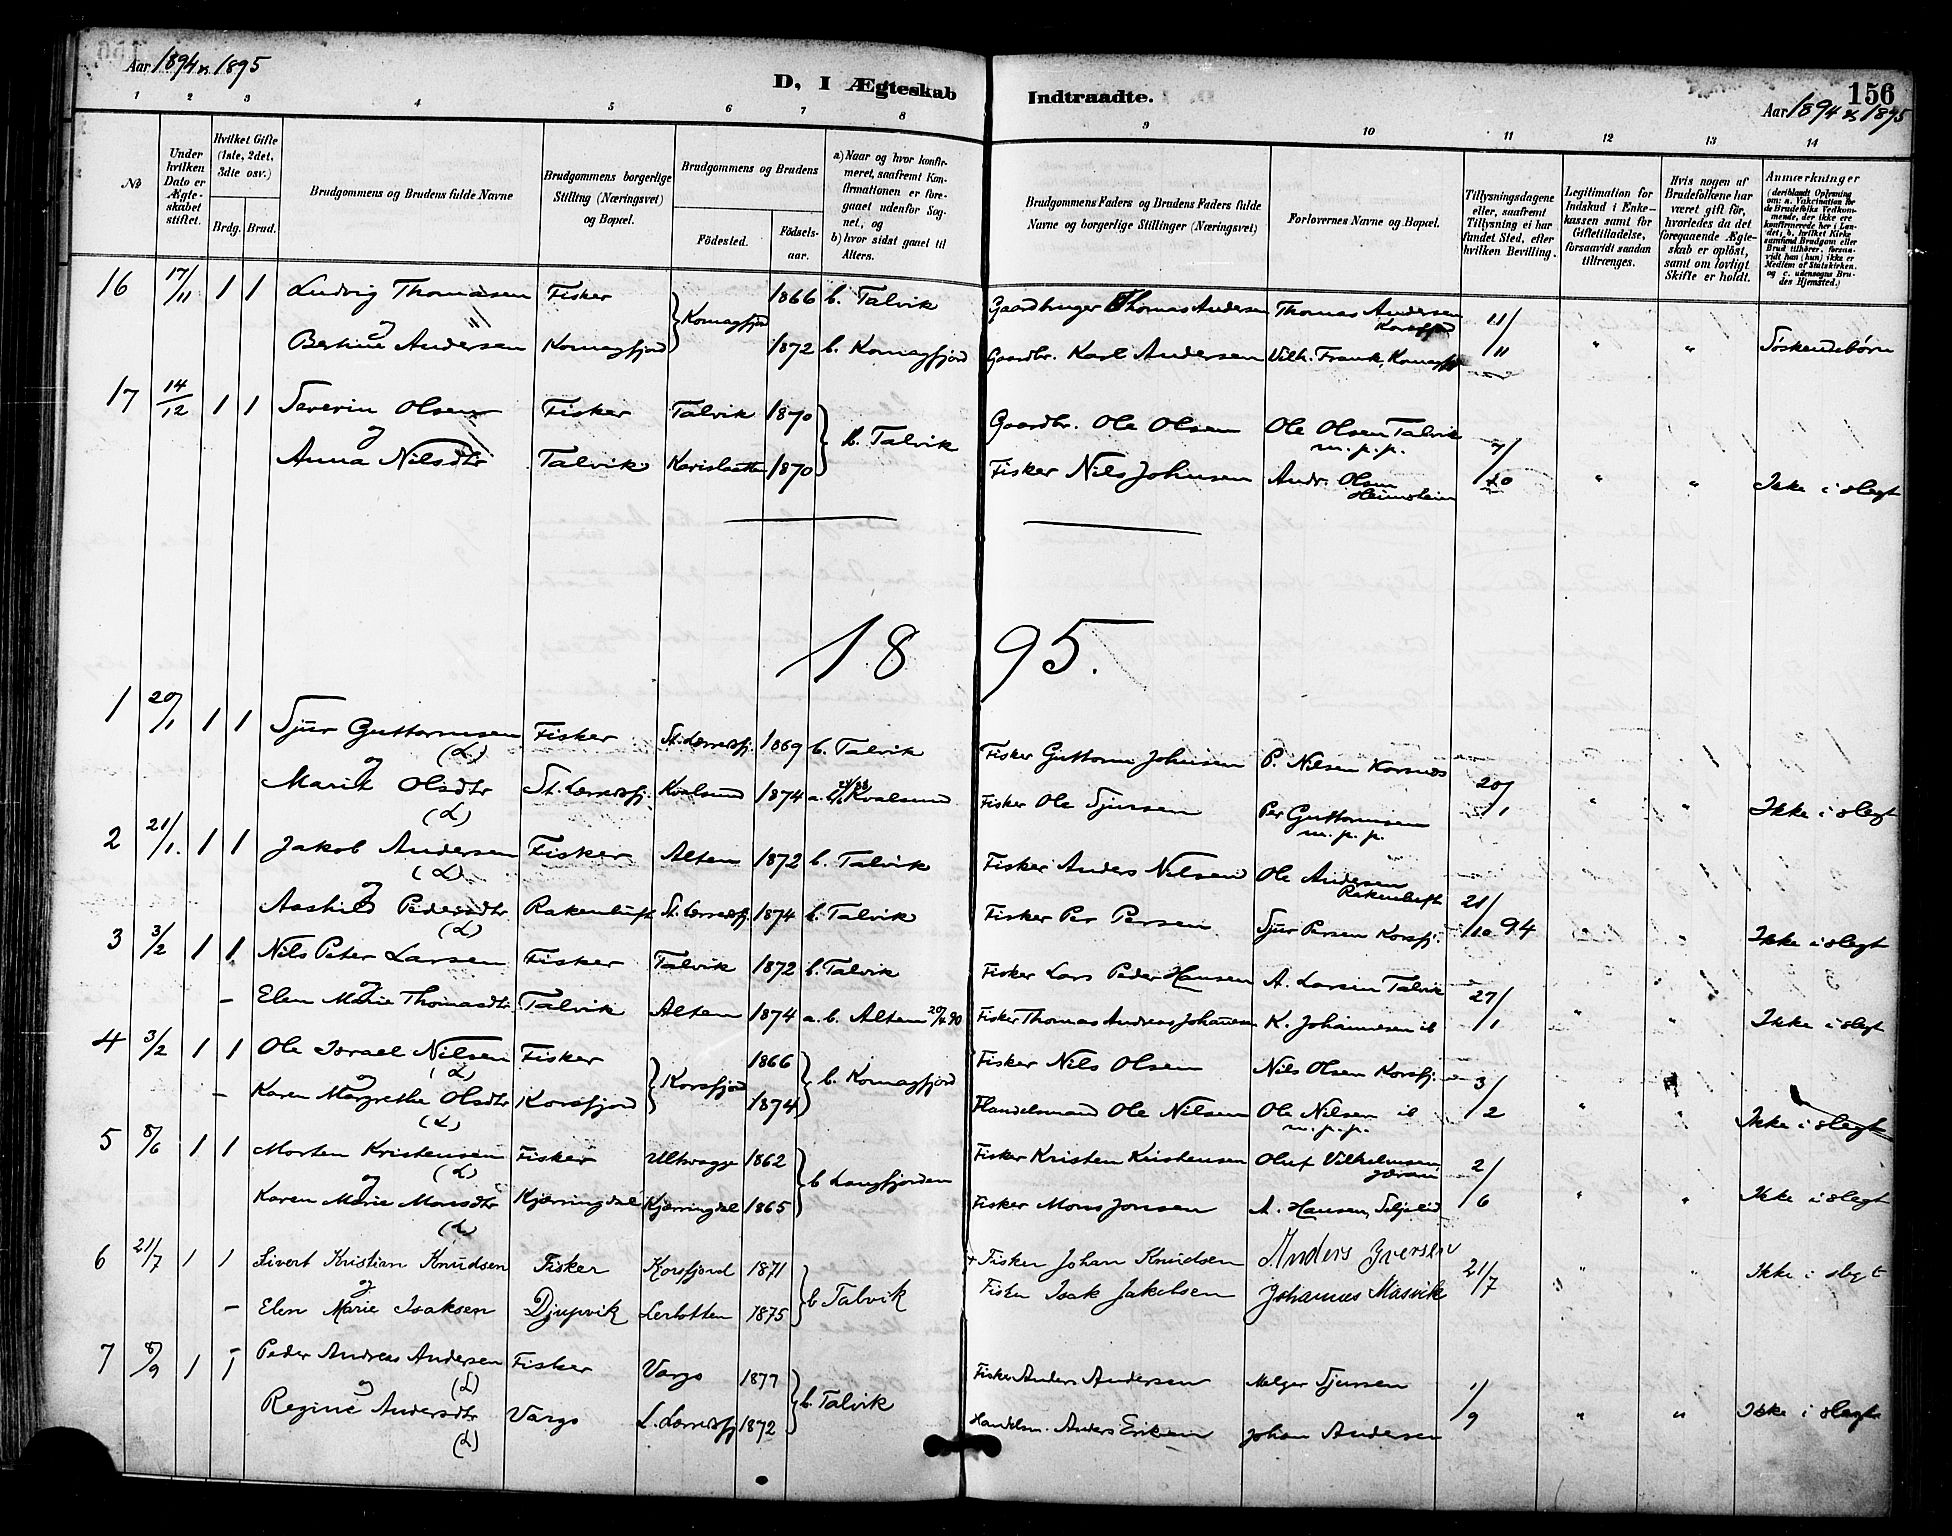 Aar 1894 & 1895
D, I Ægteskab Indtraadte.
156
Aar 1894 & 1895
1 2 3 4 5 6 7 8 9 10 11 12 13 14
No
Under hvilken Dato er Ægteskabet stiftet.
Hvilket Gifte (1ste, 2det, 3die osv.)
Brdg. Brud.
Brudgommens og Brudens fulde Navne
Brudgommens borgerlige Stilling (Næringsvei) og Bopæl.
Brudgommens og Brudens
Födested.
Födselsaar.
a) Naar og hvor konfirmeret, saafremt Konfirmationen er foregaaet udenfor Sognet, og
b) hvor sidst gaaet til Alters.
Brudgommens Faders og Brudens Faders fulde Navne og borgerlige Stillinger (Næringsvei)
Forlovernes Navne og Bopæl.
Tillysningsdagene eller, saafremt Tillysning ei har fundet Sted, efter hvilken Bevilling.
Legitimation for Indskud i Enkekassen samt for Giftetilladelse, forsaavidt saadan tiltrænges.
Hvis nogen af Brudefolkene har været gift för, hvorledes da det foregaaende Ægteskab er oplöst, samt om lovligt Skifte er holdt.
Anmærkninger
(deriblandt Oplysning om: a. Vakcination for de Brudefolks Vedkommende, der ikke ere konfirmerede her i Landet; b. hvilket Kirkesamfund Brudgom eller Brud tilhörer, forsaavidt han (hun) ikke er Medlem af Statskirken, og c. udensogns Brudes Hjemsted.)
16 17/11 1 1 Ludvig Thomasen Fisker } Komagfjord 1866 b. Talvik Gaardbruger Thomas Andersen Thomas Andersen Korsfjord 11/
og
Bertine Andersen Komagfjord 1872 b. Komagfjord Gaardbr. Karl Andersen Vilh. Frank, Komagfj 11 " " Söskendebörn
17 14/12 1 1 Severin Olsen Fisker Talvik 1870 } b. Talvik Gaardbr. Ole Olsen Ole Olsen Talvik m.p.p. 7/
og
Anna Nilsdtr Talvik 1870 Fisker Nils Johnsen Andr. Olsen 20 " " Ikke i slegt
1895.
1 20/1 1 1 Sjur Guttormsen (L) Fisker St. Lerresfj. 1869 b. Talvik Fisker Guttorm Johnsen P. Nilsen Korsnes 20/
og
Marit Olsdtr (L) St. Lerresfj. Kvalsund 1874 a. Kvalsund Fisker Ole Sjursen Per Guttormsen m.p.p. 1 " " Ikke i slegt
2 21/1. 1 1 Jakob Andersen (L) Fisker Alten 1872 b. Talvik Fisker Anders Nilsen Ole Andersen Rakenluft 21/
og
Aashild Pedersdtr (L) Rakenluft St. Lerresfj. 1874 b. Talvik Fisker Per Persen Sjur Persen Korsfj. 10 94 " Ikke i slegt
3 3/2 1 1 Nils Peter Larsen Fisker Talvik 1872 b. Talvik Fisker Lars Peder Hansen A. Larsen Talvik 27/
og
– Elen Marie Thomasdtr Talvik Alten 1874 a. b. Alten Fisker Thomas Andreas Johansen K. Johannesen ib 1 " " Ikke i slegt
4 3/2 1 1 Ole Israel Nilsen (L) Fisker } Korsfjord 1866 } b. Komagfjord Fisker Nils Olsen Nils Olsen Korsfj. 3/
og
– Karen Margrethe Olsdtr (L) Korsfjord 1874 Handelsmand Ole Nilsen Ole Nilsen ib m.p.p. 2 " " Ikke i slegt
5 8/6 1 1 Morten Kristensen (L) Fisker Ultvagge 1862 } b Langfjorden Fisker Kristen Kristensen Oluf Vilhelmsen 2/
og
Karen Marie Monsdtr (L) Kjærringdal Kjærringdal 1865 Fisker Mons Jonsen A. Hansen, 6 " " Ikke i slegt
6 21/7 1 1 Sivert Kristian Knudsen Fisker Korsfjord 1871 } b Talvik + Fisker Johan Knudsen Anders Iversen 21/7 " " Ikke i slegt
og
– Elen Marie Isaksen Djupvik Lerbotten 1875 Fisker Isak Jakobsen Johannes Masvik
7 8/9 1 1 Peder Andreas Andersen (L) Fisker Vargs 1877 } b Talvik Fisker Anders Andersen Sjursen 1/
og
Regine Andersdtr (L) Vargs L. Lerresfj 1872 Handelsm. Anders Eriksen Johan Andersen 9 " " Ikke i slegt